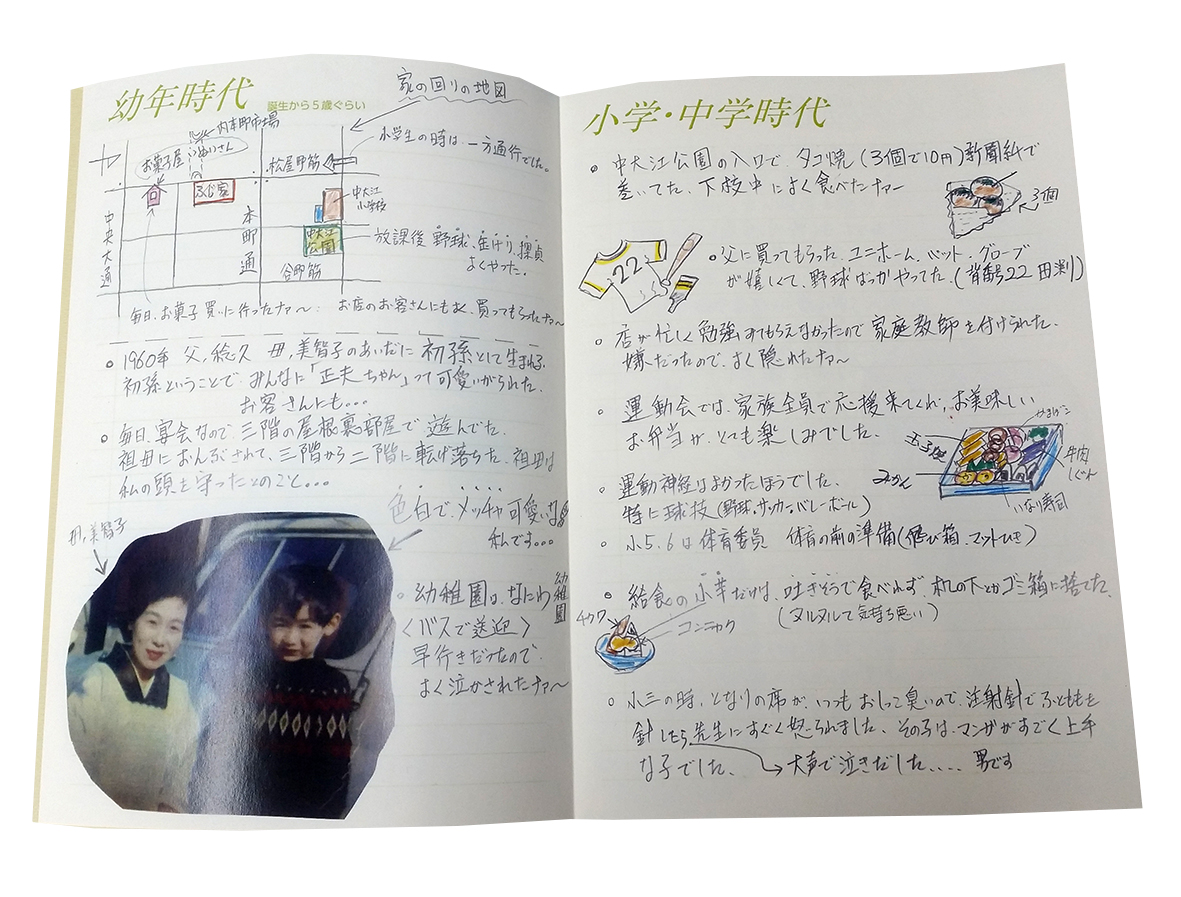 幼年時代
誕生から5歳ぐらい
家の回りの地図
内本町市場
お菓子屋
松屋町筋
小学生の時は、一方通行でした。
ふじ家
中大江
小学校
中央大通
本町通
中大江
公園
谷町筋
放課後 野球、缶けり、探偵
よくやった。
毎日、お菓子買いに行ったナァ〜 お店のお客さんにもよく、買ってもらったナァ〜
1960年 父、稔久 母、美智子のあいだに初孫として生まれる
初孫ということで、みんなに「正夫ちゃん」って可愛いがられた。
お客さんにも・・・
毎日、宴会なので、三階の屋根裏部屋で遊んでた。
祖母におんぶされて、三階から二階に転げ落ちた。祖母は
私の頭を守ったとのこと・・・
母、美智子
色白で、メッチャ可愛いな
私です・・・
幼稚園は、なにわ幼稚園
〈バスで送迎〉
早行きだったので、
よく泣かされたナァ〜
小学・中学時代
中大江公園の入口で、タコ焼(3個で10円)新聞紙で
巻いてた、下校中によく食べたナァー
3個
父に買ってもらった、ユニホーム、バット、グローブ
が嬉しくて、野球ばっかやってた。(背番号22 田渕)
22
店が忙しく勉強みてもらえなかったので 家庭教師を付けられた、
嫌だったので、よく隠れたナァ〜
運動会では、家族全員で応援来てくれ、お美味しい
お弁当が、とても楽しみでした。
玉子焼
みかん
牛肉
いなり寿司
運動神経はよかったほうでした。
特に球技(野球、サッカー、バレーボール)
小5、6は体育委員 体育の前の準備(飛び箱、マットひき)
給食の小芋だけは、吐きそうで食べれず 机の下とかゴミ箱に捨てた、
(ヌルヌルして気持ち悪い)
チクワ
コンニャク
小三の時、となりの席が、いつもおしっこ臭いので、注射針でふとももを
針したら、先生にすごく怒られました、その子は、マンガがすごく上手
な子でした、 大声で泣きだした、、、、 男です